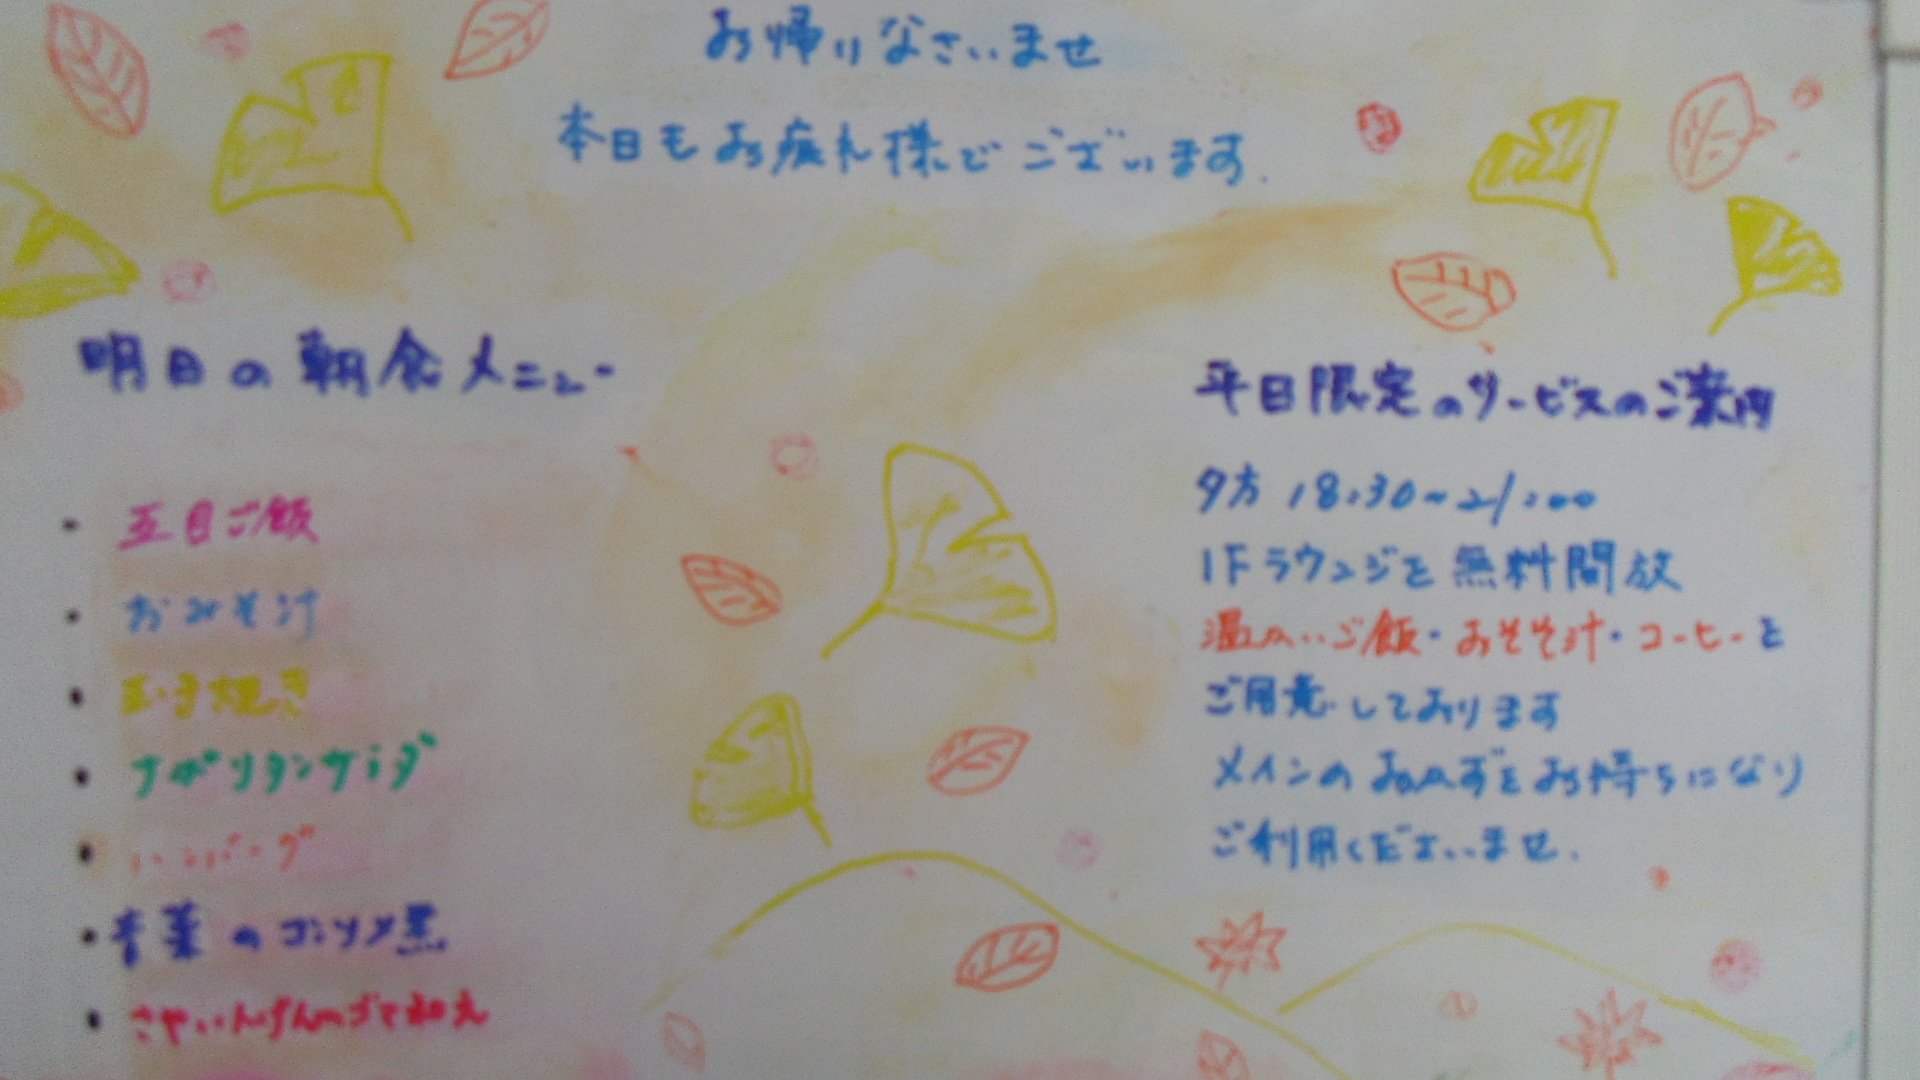 お帰りなさいませ
本日もお疲れ様でございます.
明日の朝食メニュー
・五目ご飯
・おみそ汁
・玉子焼き
・ナポリタンサラダ
・ハンバーグ
・青菜のコンソメ煮
・さやいんげんのゴマ和え
平日限定のサービスのご案内
夕方 18:30~21:00
1Fラウンジを無料開放
温かいご飯・おみそ汁・コーヒーを
ご用意しております
メインのおかずをお持ちになり
ご利用くださいませ.